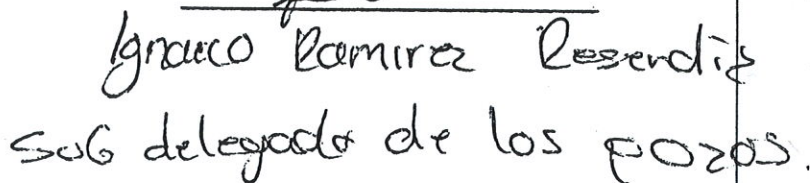 Ignacio Ramirez Resendiz
sub delegado de los pozos.